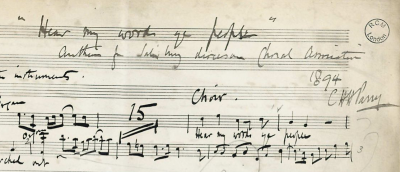 "Hear my words ye people"
Anthem for Salisbury diocesan Choral Association
1894
CHH Parry
R.C.M
London.
instruments.
Organ
15
Choir.
Hear my words ye people
out
3